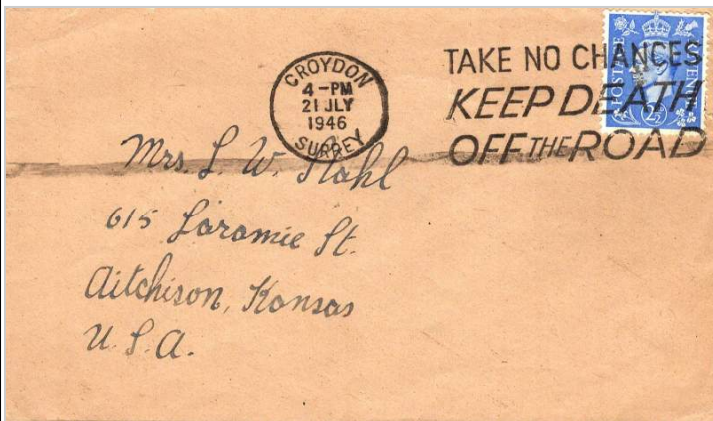 CROYDON
4-PM
21 JLY
1946
SURREY
TAKE NO CHANCES
KEEP DEATH
OFF THE ROAD
POSTAGE
2½
Mrs. L. W. Stahl
615 Laramie St.
Aitchison, Kansas
U.S.A.